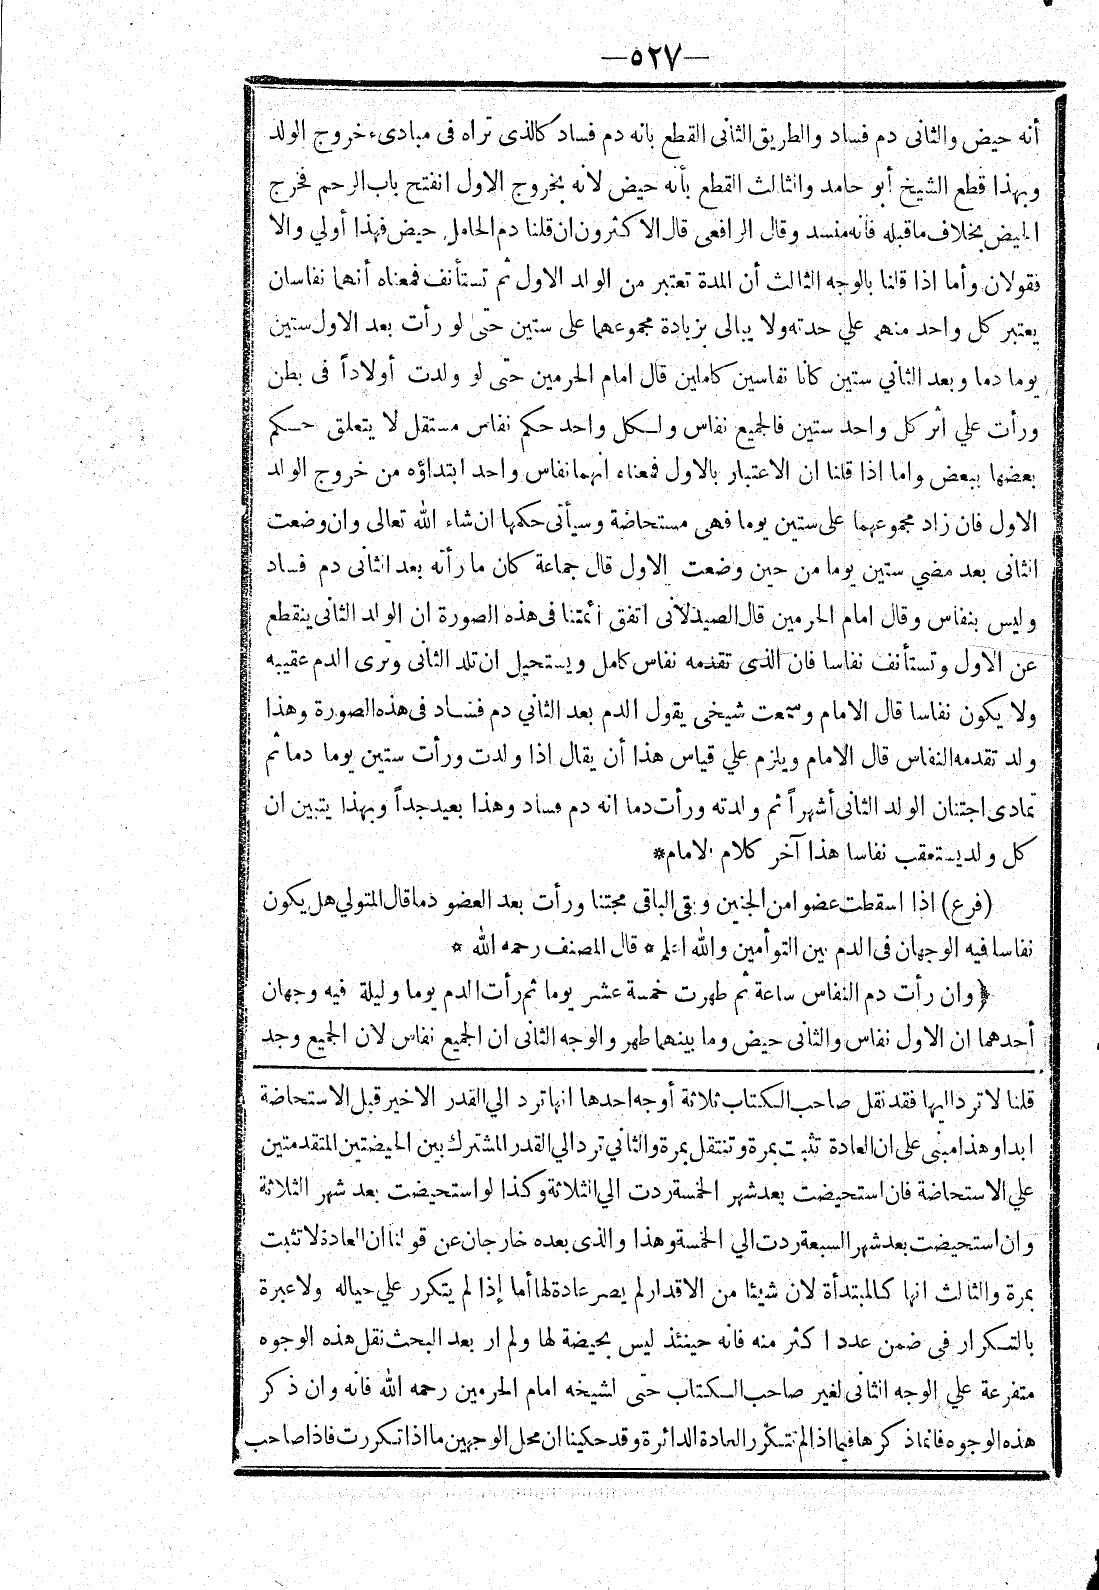 —٥٢٧—
أنه حيض والثاني دم فساد والطريق الثاني القطع بانه دم فساد كالذى تراه فى مبادىء خروج الولد
وبهذا قطع الشيخ أبو حامد والثالث القطع بأنه حيض لانه بخروج الاول انفتح باب الرحم فخرج
الحيض بخلاف ماقبله فانه منسد وقال الرافعى قال الاكثرون ان قلنا دم الحامل حيض فهذا أولي والا
فقولان وأما اذا قلنا بالوجه الثالث أن المدة تعتبر من الولد الاول ثم تستأنف فمعناه أنهما نفاسان
يعتبر كل واحد منهما علي حدته ولا يبالى بزيادة مجموعهما على ستين حتى لو رأت بعد الاول ستين
يوما دما وبعد الثاني ستين كانا نفاسين كاملين قال امام الحرمين حتى لو ولدت أولاداً فى بطن
ورأت علي أثر كل واحد ستين فالجميع نفاس ولكل واحد حكم نفاس مستقل لا يتعلق حكم
بعضها ببعض واما اذا قلنا ان الاعتبار بالاول فمعناه انهما نفاس واحد ابتداؤه من خروج الولد
الاول فان زاد مجموعهما على ستين يوما فهى مستحاضة وسيأتى حكمها ان شاء الله تعالى وان وضعت
الثانى بعد مضي ستين يوما من حين وضعت الاول قال جماعة كان ما رأته بعد الثانى دم فساد
وليس بنفاس وقال امام الحرمين قال الصيدلانى اتفق أئمتنا فى هذه الصورة ان الولد الثانى ينقطع
عن الاول وتستأنف نفاسا فان الذى تقدمه نفاس كامل ويستحيل ان تلد الثانى وترى الدم عقيبه
ولا يكون نفاسا قال الامام وسمعت شيخى يقول الدم بعد الثاني دم فساد فى هذه الصورة وهذا
ولد تقدمه النفاس قال الامام ويلزم علي قياس هذا أن يقال اذا ولدت ورأت ستين يوما دما ثم
تمادى اجتنان الولد الثانى أشهراً ثم ولدته ورأت دما انه دم فساد وهذا بعيد جداً وبهذا يتبين ان
كل ولد يستعقب نفاسا هذا آخر كلام الامام*
(فرع) اذا اسقطت عضوا من الجنين وبقى الباقى مجتنا ورأت بعد العضو دما قال المتولي هل يكون
نفاسا فيه الوجهان فى الدم بين التوأمين والله اعلم * قال المصنف رحمه الله *
﴿وان رأت دم النفاس ساعة ثم طهرت خمسة عشر يوما ثم رأت الدم يوما وليلة فيه وجهان
أحدهما ان الاول نفاس والثانى حيض وما بينهما طهر والوجه الثانى ان الجميع نفاس لان الجميع وجد
قلنا لا ترد اليها فقد نقل صاحب الكتاب ثلاثة أوجه احدها انها ترد الي القدر الاخير قبل الاستحاضة
ابدا وهذا مبنى على ان العادة تثبت بمرة وتنتقل بمرة والثاني ترد الي القدر المشترك بين الحيضتين المتقدمتين
علي الاستحاضة فان استحيضت بعد شهر الخمسة ردت الي الثلاثة وكذا لو استحيضت بعد شهر الثلاثة
وان استحيضت بعد شهر السبعة ردت الي الخمسة وهذا والذى بعده خارجان عن قولنا ان العادة لا تثبت
بمرة والثالث انها كالمبتدأة لان شيئا من الاقدار لم يصر عادة لها أما إذا لم يتكرر علي حياله ولا عبرة
بالتكرار فى ضمن عدد اكثر منه فانه حينئذ ليس بحيضة لها ولم ار بعد البحث نقل هذه الوجوه
متفرعة علي الوجه الثانى لغير صاحب الكتاب حتى لشيخه امام الحرمين رحمه الله فانه وان ذكر
هذه الوجوه فانما ذكرها فيما اذا لم تتكرر العادة الدائرة وقد حكينا ان محل الوجهين ما اذا تكررت فاذا صاحب